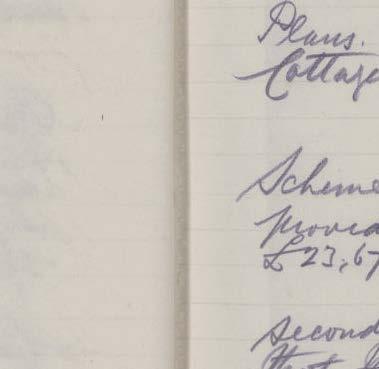 Plans.
Cottage
Scheme
provid
£23,67
second
that